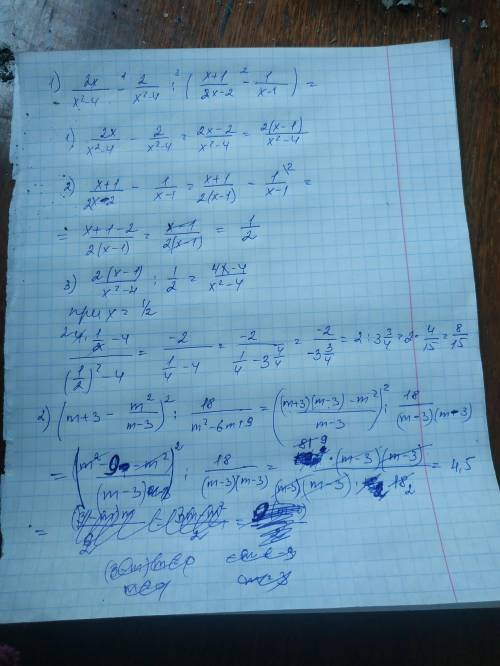 1) 2x/(x²-4) -¹ 2/(x²-4) :³ ((x+1)/(2x-2) -² 1/(x-1)) =
1) 2x/(x²-4) - 2/(x²-4) = (2x-2)/(x²-4) = 2(x-1)/(x²-4)
2) (x+1)/(2x-2) - 1/(x-1) = (x+1)/(2(x-1)) - 1\²/(x-1) =
= (x+1-2)/(2(x-1)) = (x-1)/(2(x-1)) = 1/2
3) 2(x-1)/(x²-4) : 1/2 = (4x-4)/(x²-4)
при x = 1/2
(4·1/2-4)/((1/2)²-4) = -2/(1/4-4) = -2/(1/4-3 4/4) = -2/(-3 3/4) = 2 : 3 3/4 = 2·4/15 = 8/15
2) (m+3 - m²/(m-3))² : 18/(m²-6m+9) = (((m+3)(m-3)-m²)/(m-3))² : 18/((m-3)(m-3))
= ((m²-9-m²)/(m-3))² : 18/((m-3)(m-3)) = 81 9·(m-3)(m-3)/((m-3)(m-3)·18 2) = 4,5